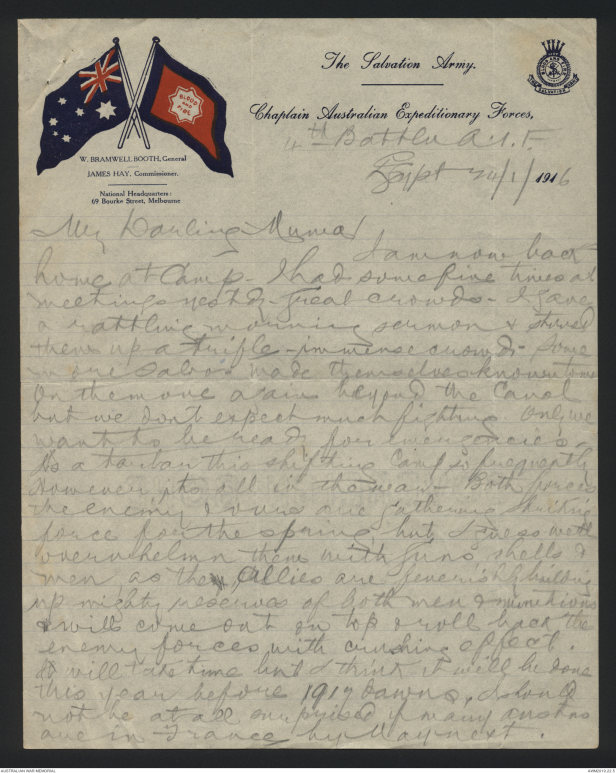 The Salvation Army.
Chaplain Australian Expeditionary Forces,
BLOOD AND FIRE
W. BRAMWELL BOOTH, General
JAMES HAY, Commissioner.
National Headquarters:
69 Bourke Street, Melbourne
4th Battln A.I.F.
Egypt 24/1/1916
My Darling Mumea
I am now back
home at Camp - I had some fine times at
meetings yestdy - great crowds - I gave
a rattling morning sermon & stirred
them up a trifle - immense crowd - some
more made themselves known to me
On the move again beyond the Canal
but we don't expect much fighting only we
want to be ready for emergencies -
Its a tartar this shifting Camp so frequently
However its all in the war - Both forces
the enemy & ours are gathering striking
force for the spring, but I guess we'll
overwhelm them with guns shells &
men as the Allies are feverishly building
up mighty reserves of both men & munitions
& will come out on top & roll back the
enemy forces with crushing effect.
It will take time but I think it will be done
this year before 1917 dawns, I should
not be at all surprised if many
are in France by May next.
AUSTRALIAN WAR MEMORIAL